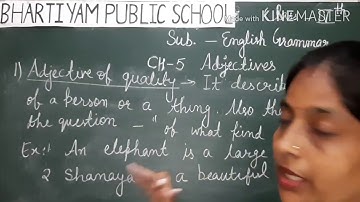 BHARTIYAM PUBLIC SCHOOL
Made with KINEMASTER
Sub. – English Grammar
CH-5 Adjectives
1) Adjective of quality → It descri
of a person or a thing. Also th
the question – " of what kind
Ex:1 An elephant is a large
2 Shanaya a beautiful